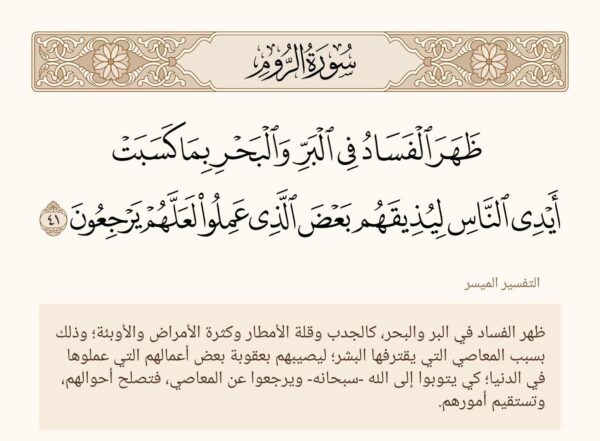 سُورَةُ الرُّومِ
ظَهَرَ ٱلۡفَسَادُ فِي ٱلۡبَرِّ وَٱلۡبَحۡرِ بِمَا كَسَبَتۡ
أَيۡدِي ٱلنَّاسِ لِيُذِيقَهُم بَعۡضَ ٱلَّذِي عَمِلُواْ لَعَلَّهُمۡ يَرۡجِعُونَ ٤١
التفسير الميسر
ظهر الفساد في البر والبحر، كالجدب وقلة الأمطار وكثرة الأمراض والأوبئة؛ وذلك
بسبب المعاصي التي يقترفها البشر؛ ليصيبهم بعقوبة بعض أعمالهم التي عملوها
في الدنيا؛ كي يتوبوا إلى الله -سبحانه- ويرجعوا عن المعاصي، فتصلح أحوالهم،
وتستقيم أمورهم.